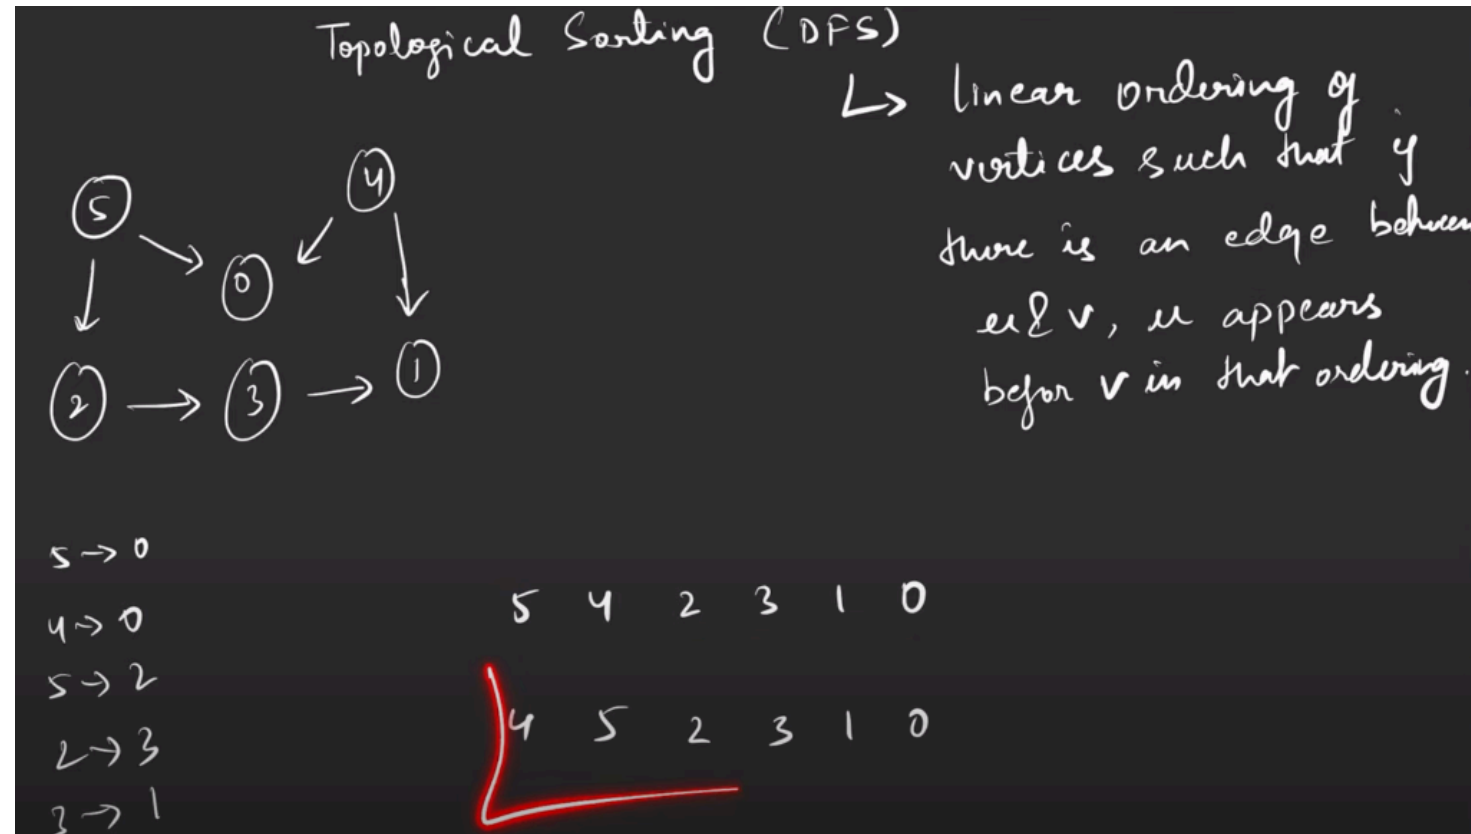 Topological Sorting (DFS)
↳ linear ordering of
vertices such that if
there is an edge between
u & v, u appears
befor v in that ordering.
5
4
0
2 → 3 → 1
5 → 0
4 → 0
5 → 2
2 → 3
3 → 1
5 4 2 3 1 0
4 5 2 3 1 0